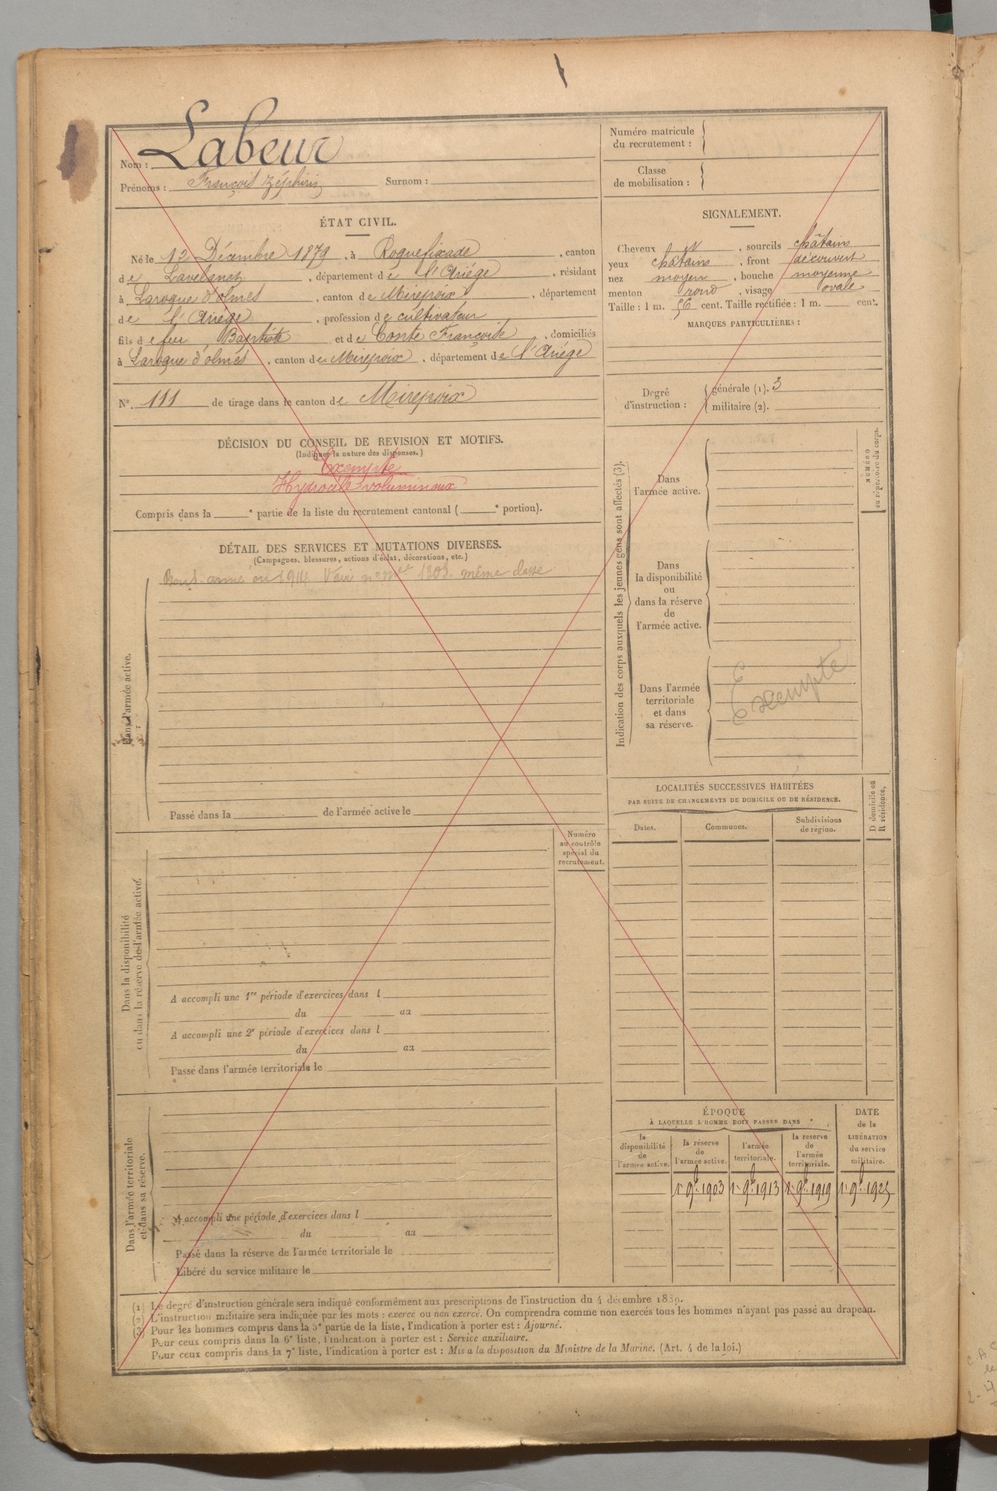 Nom : Labeur
Prénoms : François Zéphirin Surnom :
ÉTAT CIVIL.
Né le 12 Décembre 1879, à Roquefixade, canton
de Lavelanet, département de l'Ariége, résidant
à Laroque d'olmes, canton de Mirepoix, département
de l'Ariége, profession de cultivateur
fils de feu Baptiste et de Conte Françoise, domiciliés
à Laroque d'olmes, canton de Mirepoix, département de l'Ariége
N° 111 de tirage dans le canton de Mirepoix
DÉCISION DU CONSEIL DE REVISION ET MOTIFS.
(Indiquer la nature des dispenses.)
Exempté
Hydrocèle volumineux
Compris dans la e partie de la liste du recrutement cantonal ( e portion).
DÉTAIL DES SERVICES ET MUTATIONS DIVERSES.
(Campagnes, blessures, actions d'éclat, décorations, etc.)
Bon S. armé en 1914. Voir n° mle 1303 même classe
Dans l'armée active.
Passé dans la de l'armée active le
Numéro
au contrôle
spécial du
recrutement.
Dans la disponibilité
ou dans la réserve de l'armée active.
A accompli une 1re période d'exercices dans l
du au
A accompli une 2e période d'exercices dans l
du au
Passé dans l'armée territoriale le
Dans l'armée territoriale
et dans sa réserve.
A accompli une période d'exercices dans l
du au
Passé dans la réserve de l'armée territoriale le
Libéré du service militaire le
Numéro matricule
du recrutement :
Classe
de mobilisation :
SIGNALEMENT.
Cheveux , sourcils châtains
yeux châtains, front découvert
nez moyen, bouche moyenne
menton rond, visage ovale
Taille : 1 m. 56 cent. Taille rectifiée : 1 m. cent.
MARQUES PARTICULIÈRES :
Degré
d'instruction :
générale (1). 3
militaire (2).
Indication des corps auxquels les jeunes gens sont affectés (3).
Dans
l'armée active.
NUMÉRO
au répertoire du corps.
Dans
la disponibilité
ou
dans la réserve
de
l'armée active.
Dans l'armée
territoriale
et dans
sa réserve.
Exempté
LOCALITÉS SUCCESSIVES HABITÉES
PAR SUITE DE CHANGEMENTS DE DOMICILE OU DE RÉSIDENCE.
D domicile ou
R résidence.
Dates. Communes. Subdivisions
de région.
ÉPOQUE
À LAQUELLE L'HOMME DOIT PASSER DANS :
la
disponibilité
de
l'armée active.
la réserve
de
l'armée active.
l'armée
territoriale.
la réserve
de
l'armée
territoriale.
DATE
de la
LIBÉRATION
du service
militaire.
1r 9bre 1903 1r 9bre 1913 1r 9bre 1919 1r 9bre 1925
(1) Le degré d'instruction générale sera indiqué conformément aux prescriptions de l'instruction du 4 décembre 1889.
(2) L'instruction militaire sera indiquée par les mots : exercé ou non exercé. On comprendra comme non exercés tous les hommes n'ayant pas passé au drapeau.
(3) Pour les hommes compris dans la 5e partie de la liste, l'indication à porter est : Ajourné.
Pour ceux compris dans la 6e liste, l'indication à porter est : Service auxiliaire.
Pour ceux compris dans la 7e liste, l'indication à porter est : Mis à la disposition du Ministre de la Marine. (Art. 4 de la loi.)